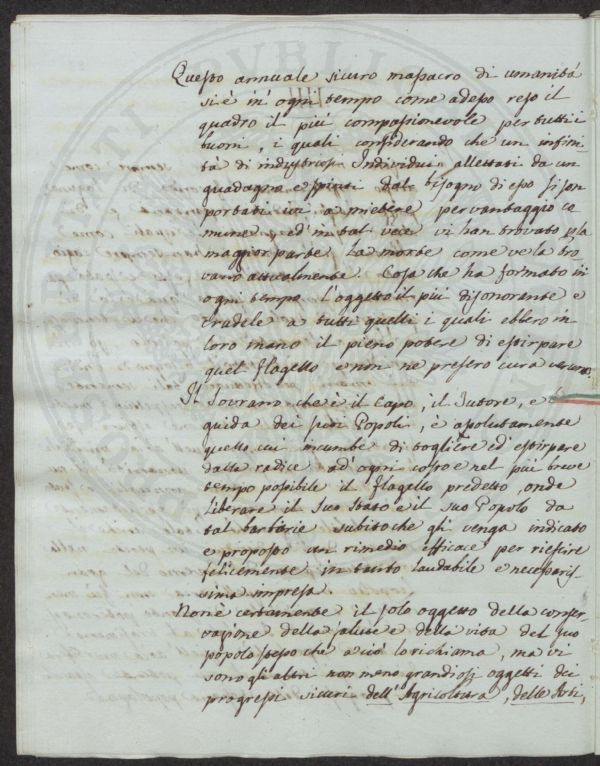 Questo annuale sicuro massacro di umanità
si è in ogni tempo come adesso reso il
quadro il più compassionevole per tutti i
buoni, i quali considerando che un infini
tà di industriosi Individui allettati da un
guadagno e spinti dal bisogno di esso si son
portati ivi a mietere per vantaggio co
mune, ed in tal vece vi han trovato p la
maggior parte La morte come ve la tro
vano attualmente. Cosa che ha formato in
ogni tempo l'oggetto il più disonorante e
crudele a tutti quelli i quali ebbero in
loro mano il pieno potere di estirpare
quel flagello e non ne presero cura veruna.
Il Sovrano che è il Capo, il Tutore, e la
guida dei suoi Popoli, è assolutamente
quello cui incumbe di togliere ed estirpare
dalla radice ad ogni costo e nel più breve
tempo possibile il flagello predetto, onde
liberare il Suo Stato e il suo Popolo da
tal barbarie subito che gli venga indicato
e proposto un rimedio efficace per riescire
felicemente in tanto laudabile e necessaris
sima impresa.
Non è certamente il solo oggetto della conser-
vazione della salute e della vita del suo
popolo stesso che a ciò lo richiama, ma vi
sono gli altri non meno grandiosi oggetti dei
progressi sicuri dell'Agricoltura, delle Arti,
PVBLIC